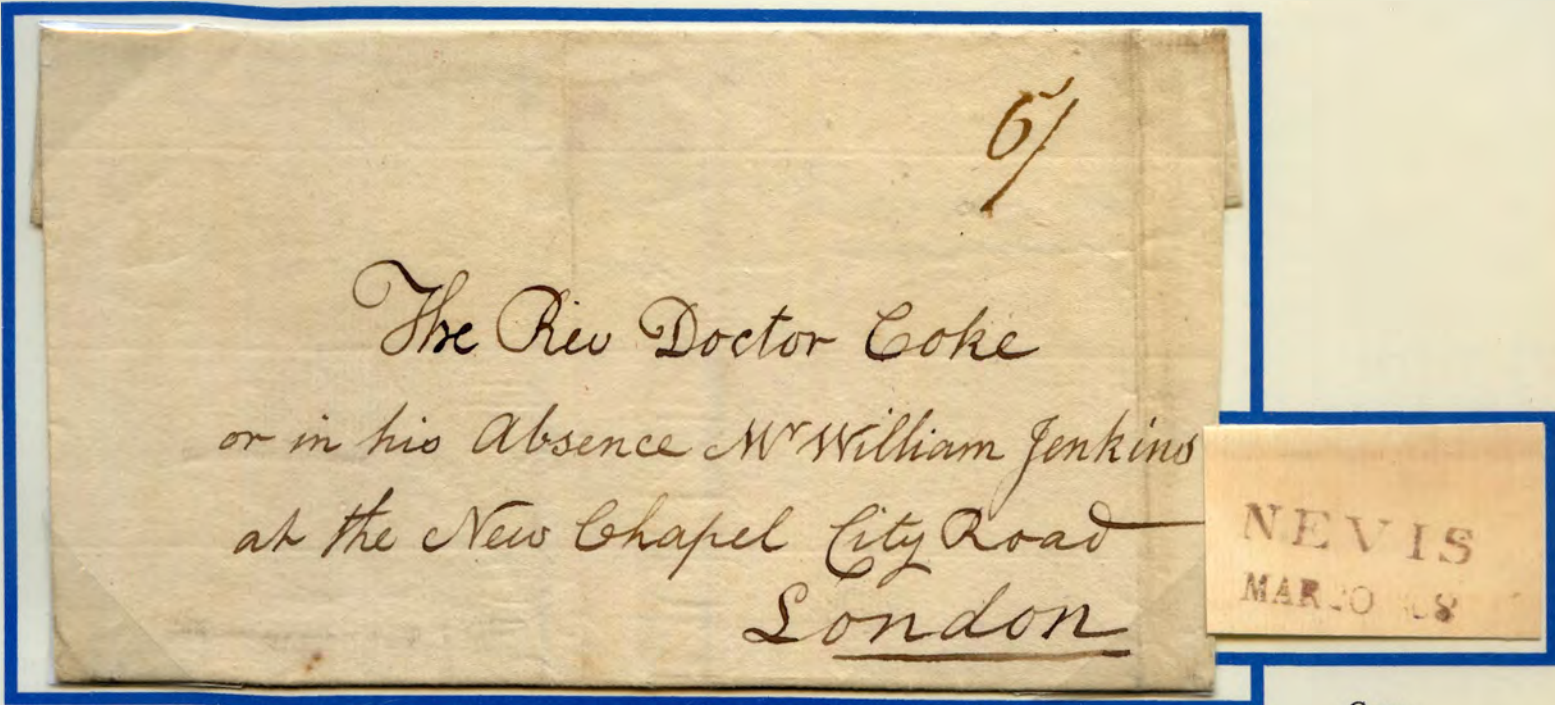 6/
The Rev Doctor Coke
or in his Absence Mr William Jenkins
at the New Chapel City Road
London
NEVIS
MAR